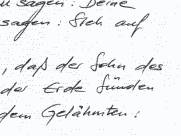 sagen: Deine
sagen: Steh auf
, daß der Sohn des
der Erde Sünden
dem Gelähmten: